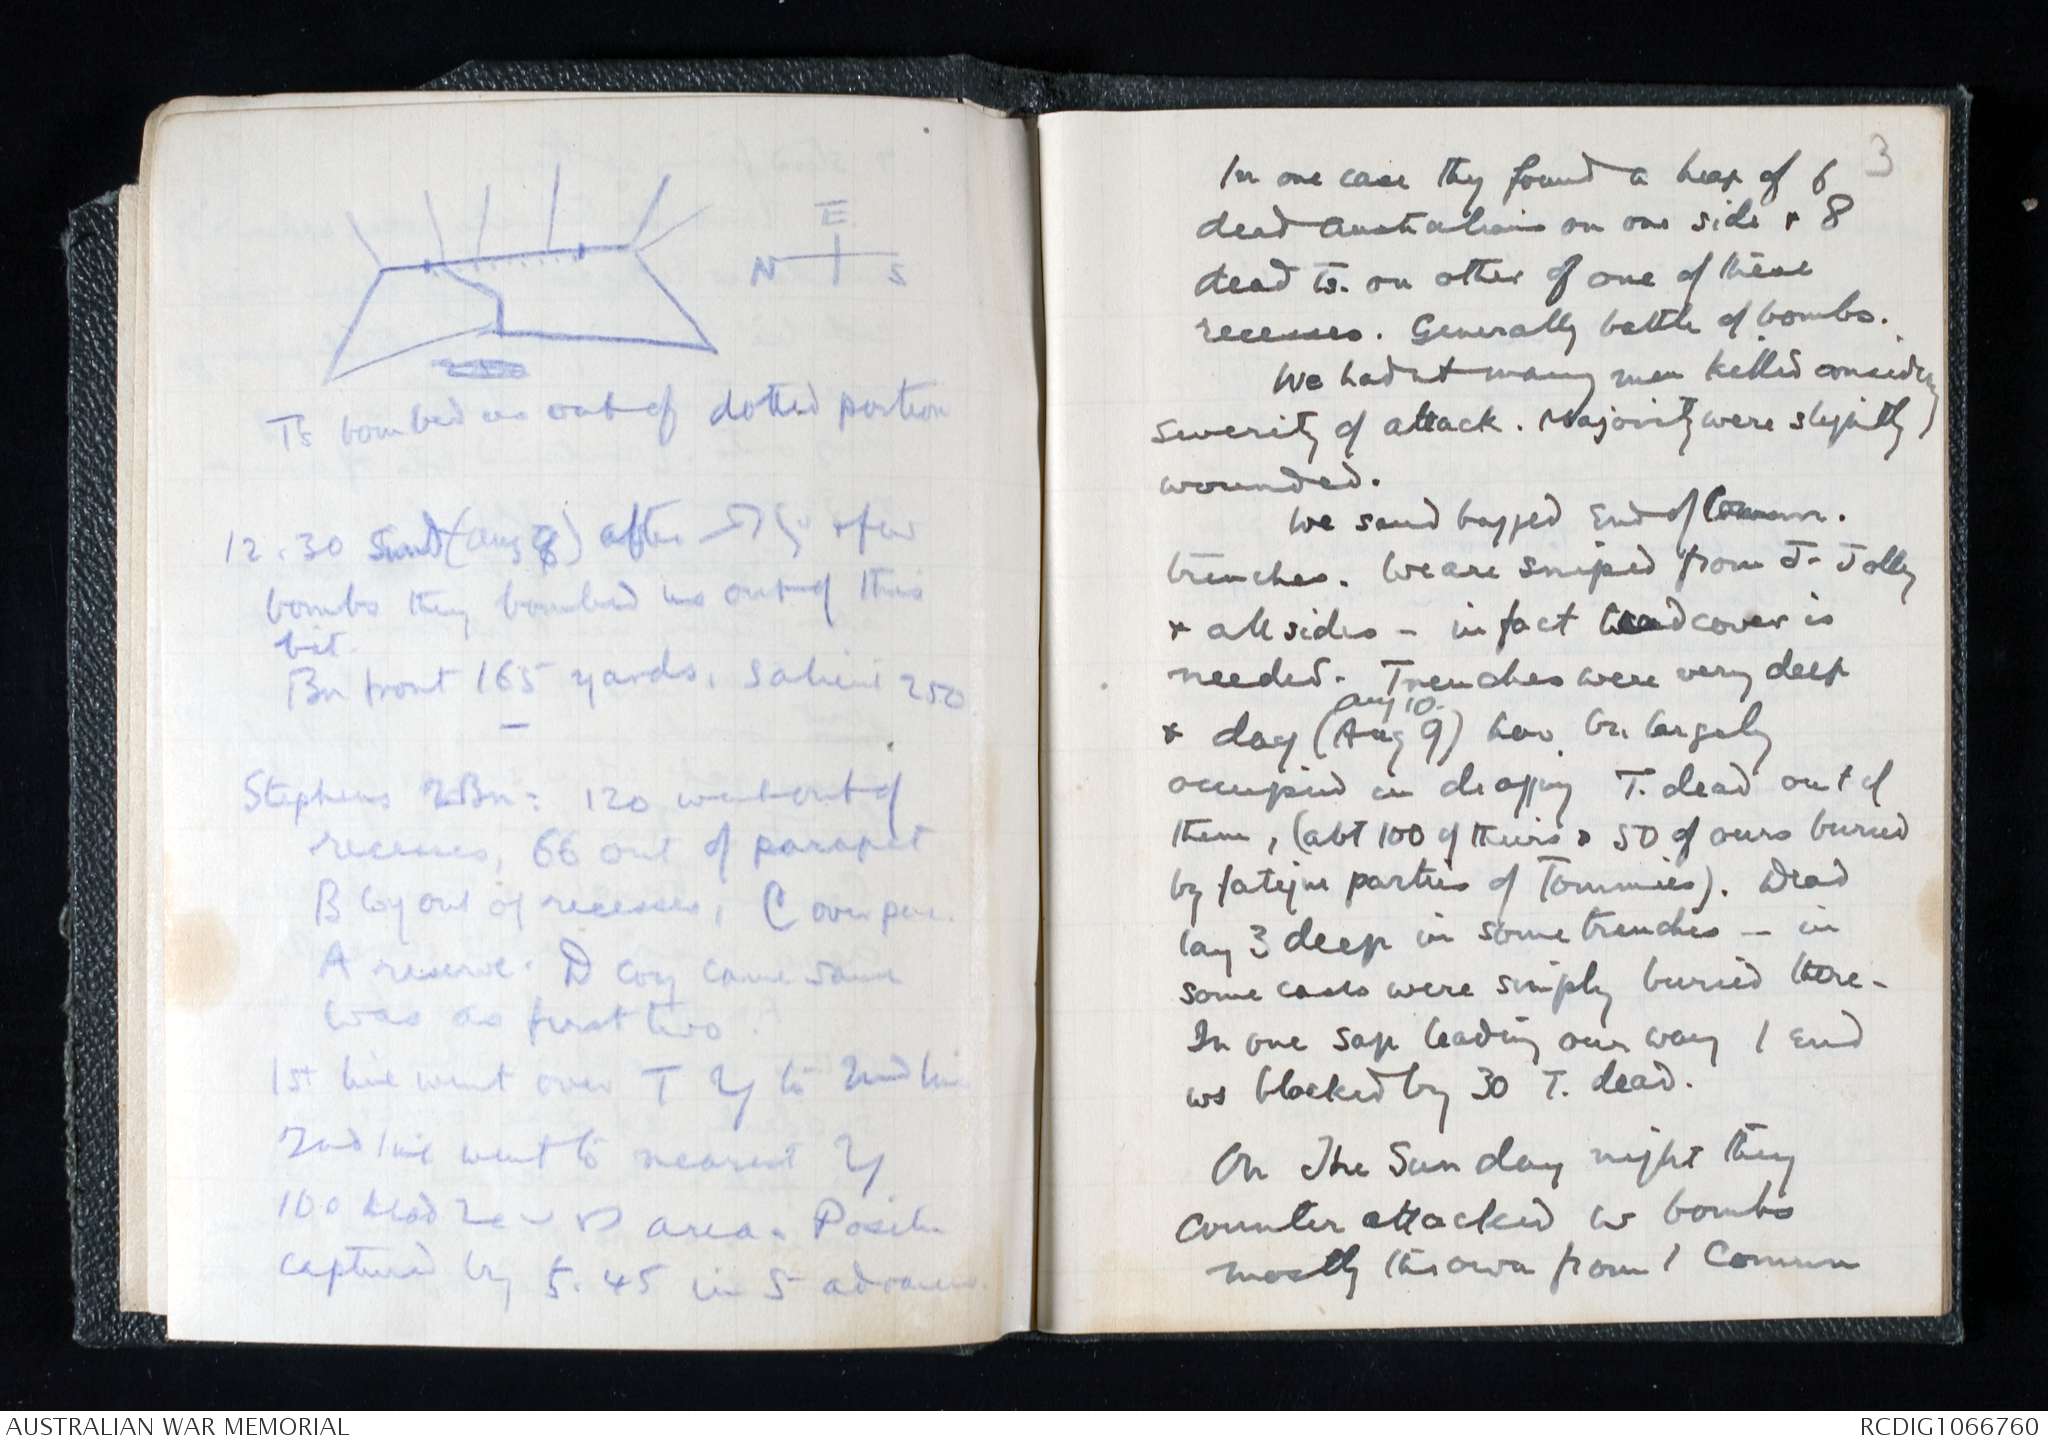 E
N S
Ts bombed us out of dotted portion
12.30 Sund (Aug 8) after & few
bombs they bombed us out of this
bit.
Bn front 165 yards, salient 250
Stephens 2Bn: 120 went out of
recesses, 66 out of parapet
B Coy out of recesses, C over par.
A reserve. D coy came same
was as first two.
1st line went over T to 2nd line
2nd line went to nearest
100 area. Positn
captured by 5.45 in 5 advances.
3
In one case they found a heap of 6
dead Australians on one side & 8
dead Ts. on other of one of these
recesses. Generally battle of bombs.
We hadnt many men killed considg
severity of attack. Majority were slightly
wounded.
We sand bagged End of Commn.
trenches. We are sniped from J. Jolly
& all sides - in fact headcover is
needed. Trenches were very deep
Aug 10.
& day (Aug 9) has bn largely
occupied in dragging T. dead out of
them, (abt 100 of theirs & 50 of ours buried
by fatigue parties of Tommies). Dead
lay 3 deep in some trenches - in
some cases were simply buried there.
In one sap leading our way / End
ws blocked by 30 T. dead.
On The Sunday night they
counter attacked w bombs
mostly thrown from / Commn
AUSTRALIAN WAR MEMORIAL
RCDIG1066760